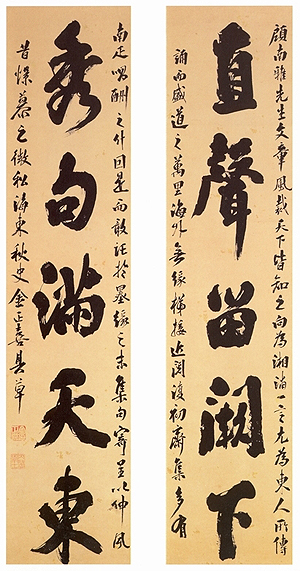 顧南雅先生文章風裁天下皆知之向為湘一尤為東人所傳
直聲留闕下
誦而盛道之萬里海外無緣梯接近閱復初齋集多有
南疋唱酬之什因是而敢託於墨緣之末集句寄呈以伸夙
秀句滿天東
昔慕之微私海東秋史金正喜具草